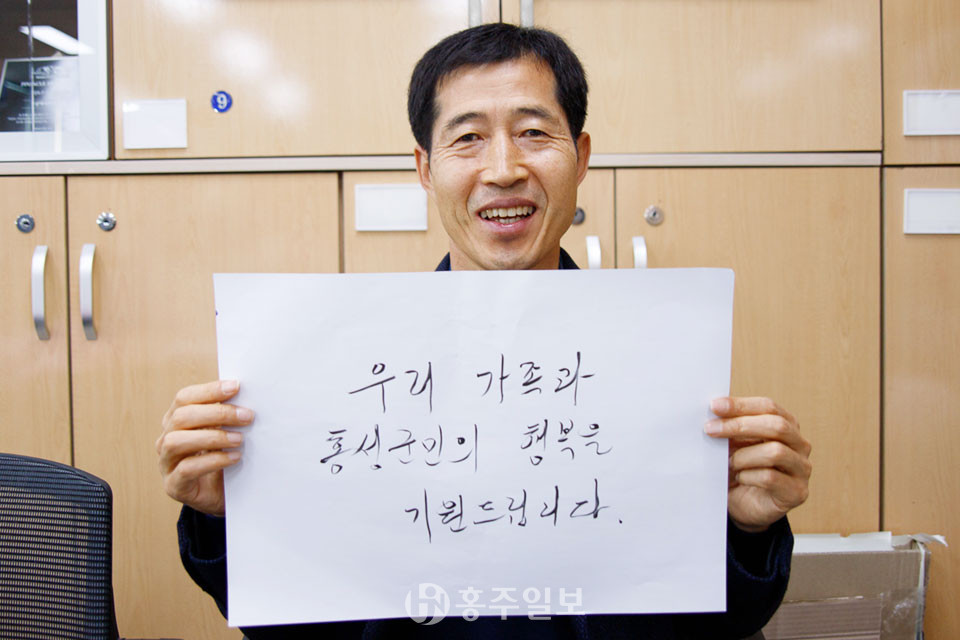 9
우리 가족과
홍성군민의 행복을
기원드립니다.
홍주일보